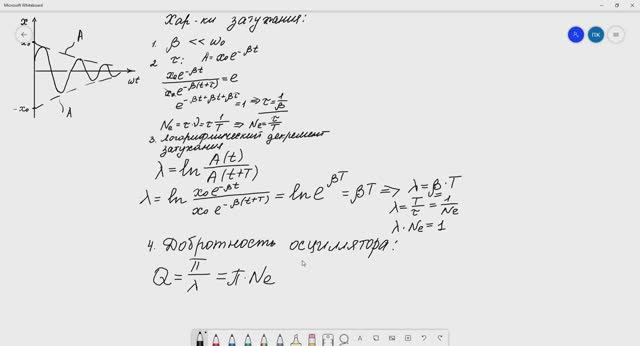 Microsoft Whiteboard
Хар-ки затухания:
x
x₀
A
ωt
-x₀
A
1. β << ω₀
2. τ: A = x₀e^-βt
x₀e^-βt / x₀e^-β(t+τ) = e
e^-βt+βt+βτ = 1 => τ = 1/β
Ne = τ·ν = τ 1/T => Ne = τ/T
3. логорифмический декремент
затухания
λ = ln A(t) / A(t+T)
λ = ln x₀e^-βt / x₀e^-β(t+T) = ln e^βT = βT => λ = β·T
λ = T/τ = 1/Ne
λ·Ne = 1
4. Добротность осциллятора:
Q = π/λ = π·Ne
ПК